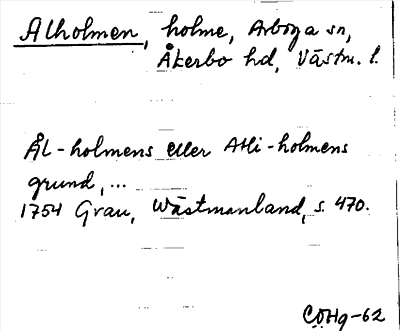 Alholmen, holme, Arboga sn,
Åkerbo hd, Västm. l.
Ål-holmens eller Alli-holmens
grund, ...
1754 Grau, Wästmanland, s. 470.
COHg-62